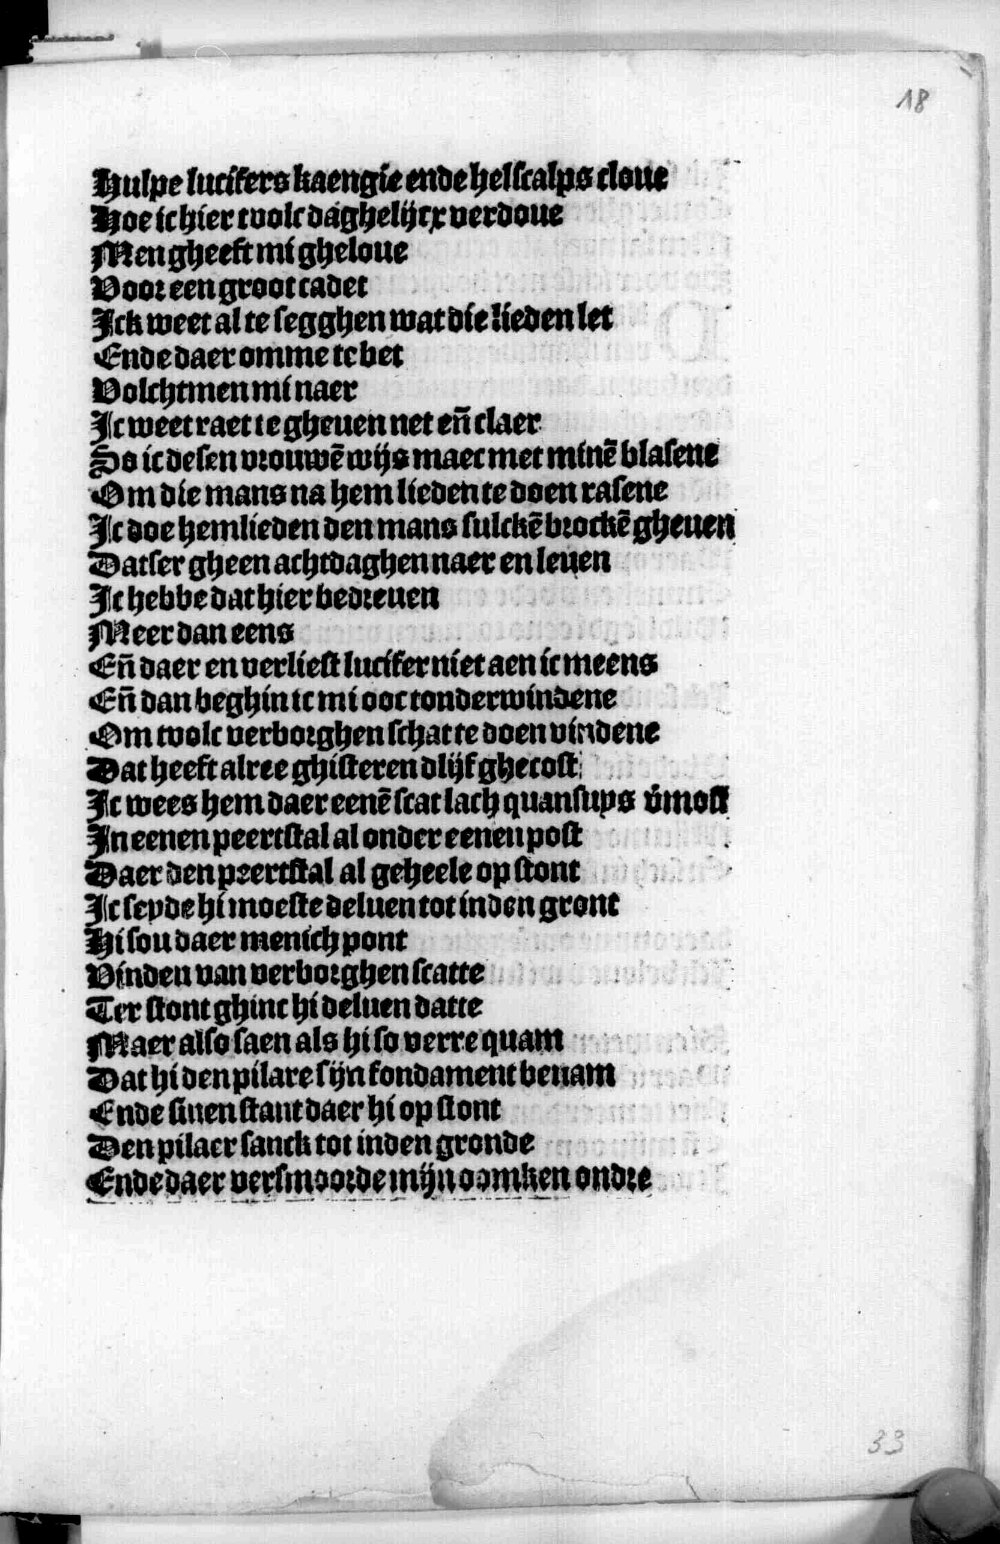 18
Hulpe lucifers kaengie ende helscalps cloue
Hoe ic hier tvolc daghelijcx verdoue
Men gheeft mi gheloue
Voor een groot cadet
Ick weet al te segghen wat die lieden let
Ende daer omme te bet
Volchtmen mi naer
Ic weet raet te gheuen net eñ claer
So ic desen vrouwē wijs maec met minē blasene
Om die mans na hem lieden te doen rasene
Ic doe hemlieden den mans sulckē brockē gheuen
Datser gheen acht daghen naer en leuen
Ic hebbe dat hier bedreuen
Meer dan eens
Eñ daer en verliest lucifer niet aen ic meens
Eñ dan beghin ic mi ooc tonderwindene
Om tvolc verborghen schat te doen vindene
Dat heeft alree ghisteren dlijf ghecost
Ic wees hem daer eenē scat lach quansuys v̄most
In eenen peertstal al onder eenen post
Daer den peertstal al geheele op stont
Ic seyde hi moeste deluen tot inden gront
Hi sou daer menich pont
Vinden van verborghen scatte
Ter stont ghinc hi deluen datte
Maer also saen als hi so verre quam
Dat hi den pilare sijn fondament benam
Ende sinen stant daer hi op stont
Den pilaer sanck tot inden gronde
Ende daer versmoorde mijn oomken ondre
33